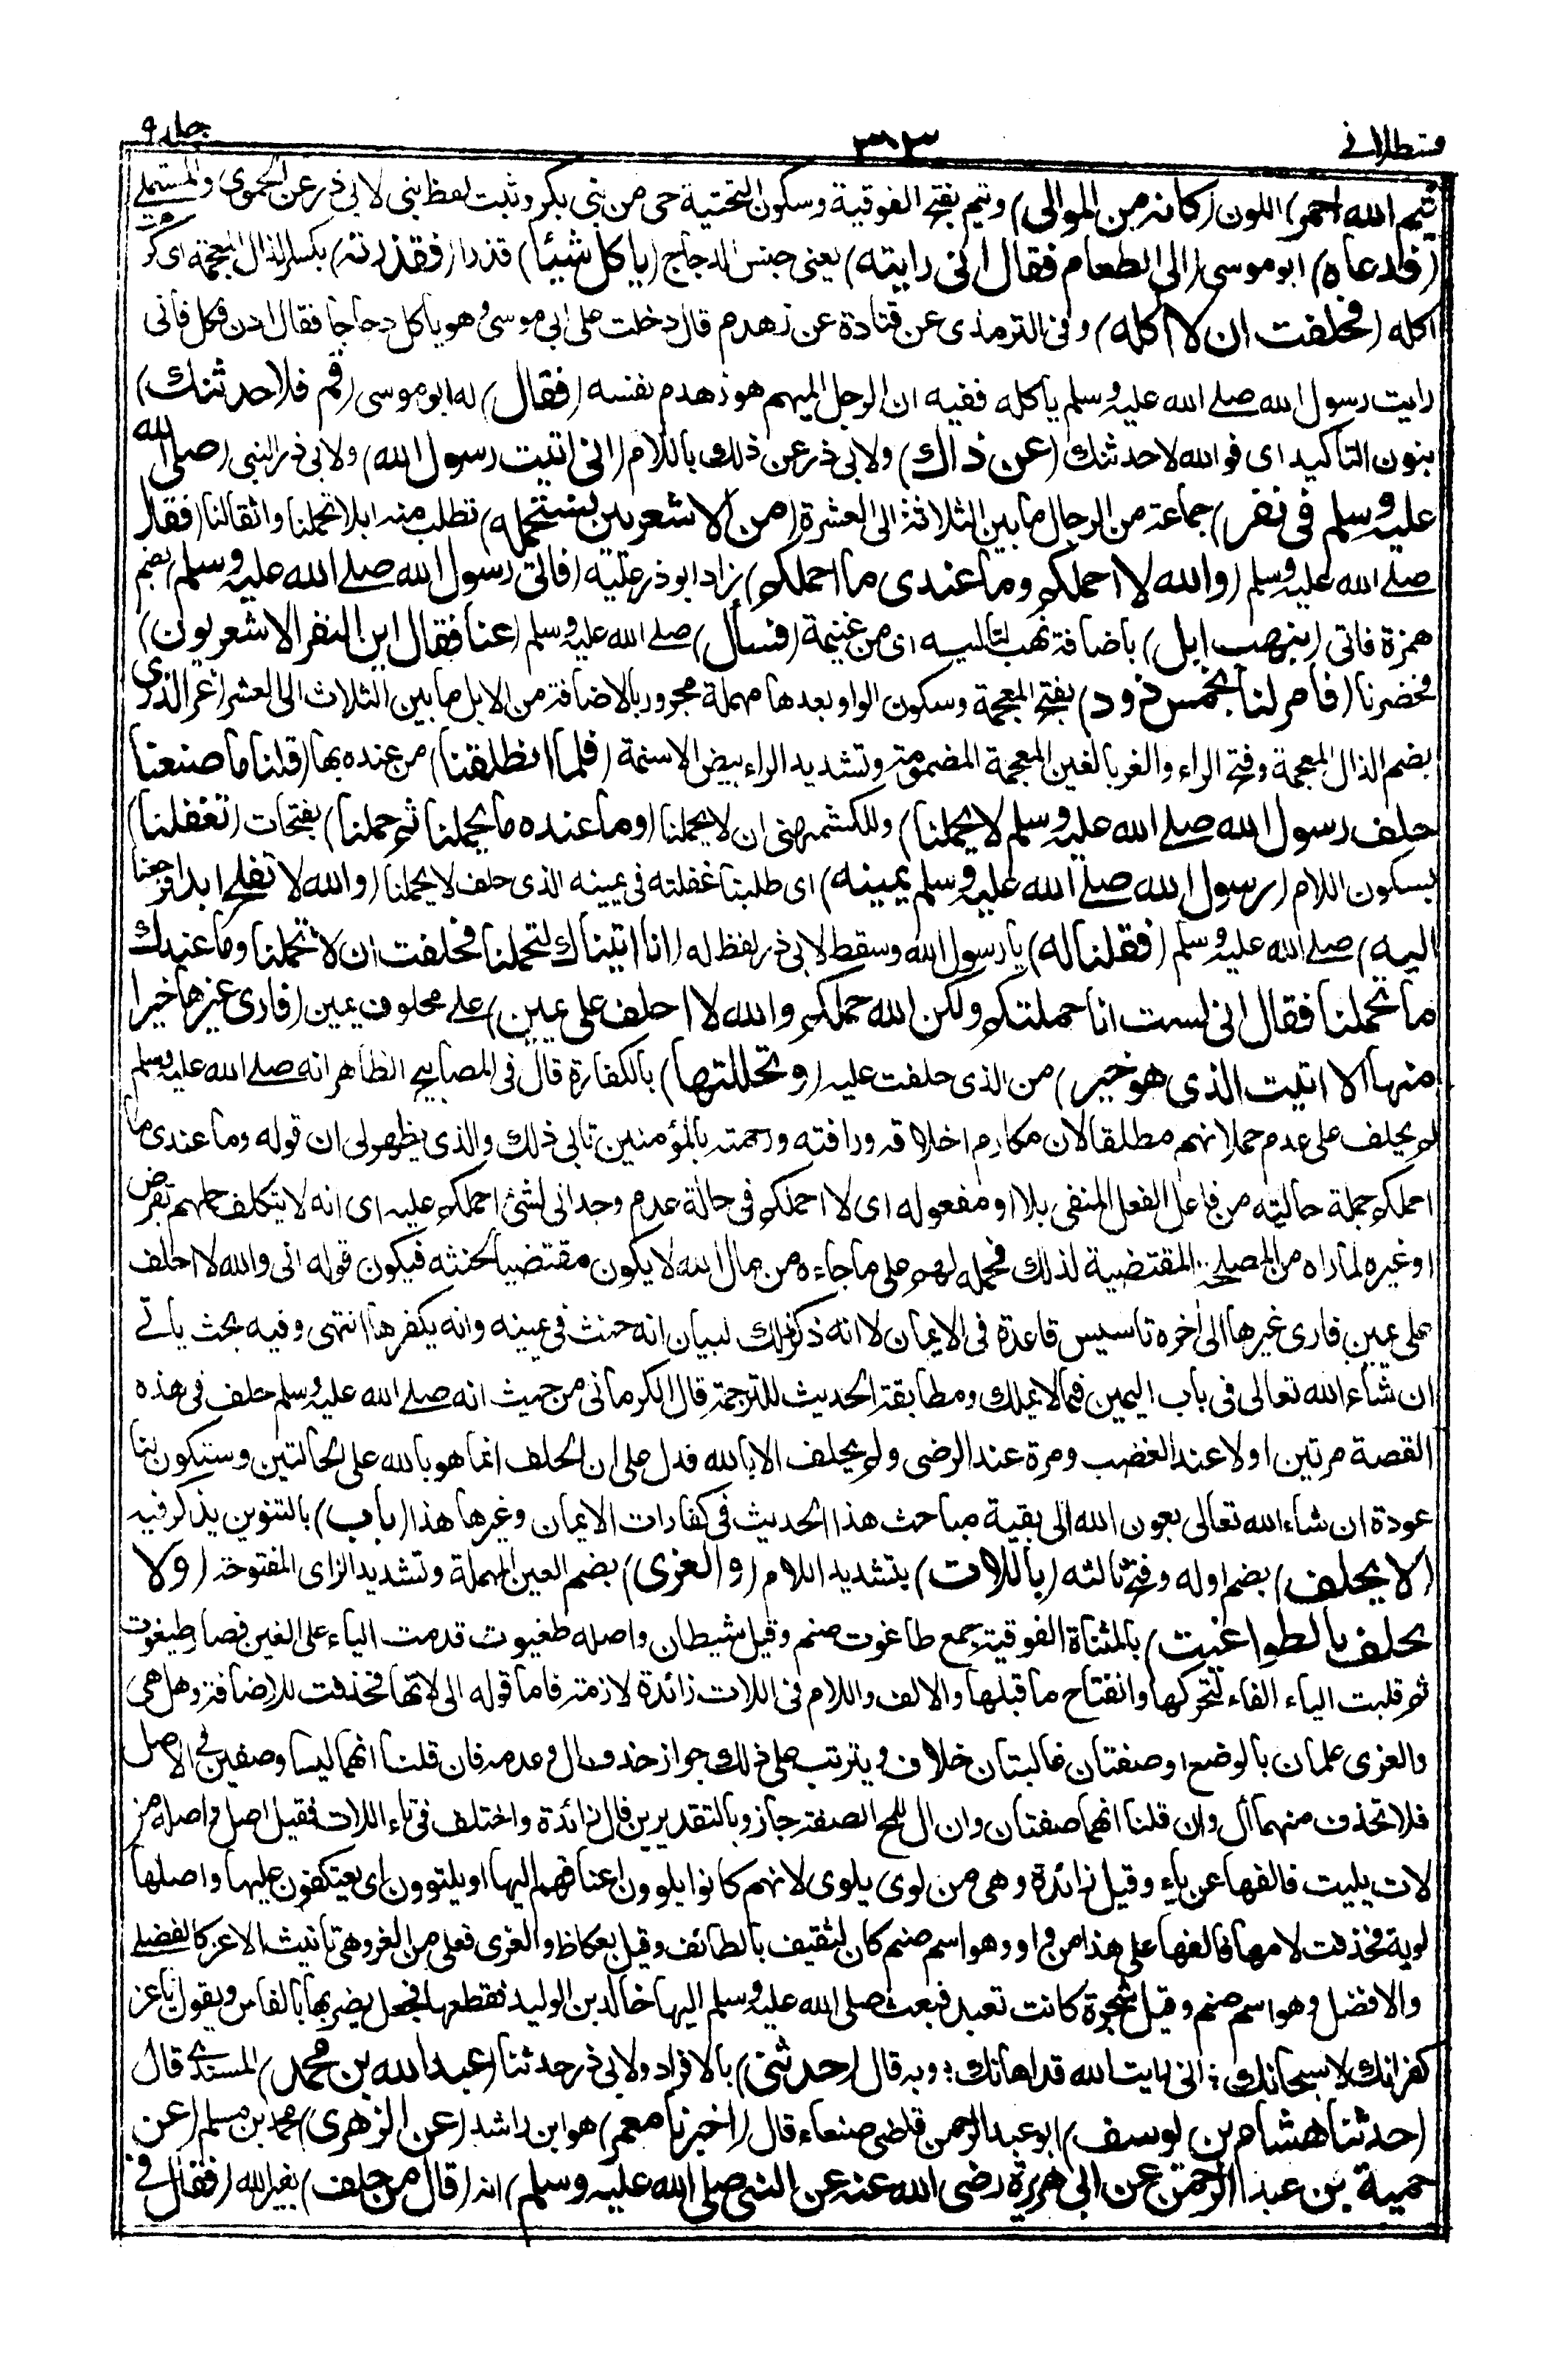 قسطلانی ٣٠٣ جلد ٩
تيم الله احمر) اللون (كانه من الموالى) وتيم بفتح الفوقية وسكون التحتية حى من بنى بكر وثبت لفظ بنى لابى ذر عن الحموى والمستملے
(فدعاه) ابو موسى (الى الطعام فقال انى رايته) يعنى جنس الدجاج (ياكل شيئا) قذرا (فقذرته) بكسر الذال المعجمة اى كرهت
اكله (فحلفت ان لا اكله) وفى الترمذى عن قتادة عن زهدم قال دخلت على ابى موسى وهو ياكل دجاجا فقال ادن فكل فانى
رايت رسول الله صلے الله عليه وسلم ياكله ففيه ان الرجل المبهم هو زهدم نفسه (فقال) له ابو موسى (قم فلاحدثنك)
بنون التاكيد اى فوالله لاحدثنك (عن ذاك) ولابى ذر عن ذلك باللام (انى اتيت رسول الله) ولابى ذر النبى (صلى الله
عليه وسلم فى نفر) جماعة من الرجال ما بين الثلاثة الى العشرة (من الاشعريين نستحمله) نطلب منه ابلا تحملنا واثقالنا (فقال
صلے الله عليه وسلم (والله لا احملكم وما عندى ما احملكم) زاد ابو ذر عليه (فاتى رسول الله صلے الله عليه وسلم) بضم
همزة فاتى (بنهب ابل) باضافة نهب لتاليه اى من غنيمة (فسأل) صلے الله عليه وسلم (عنا فقال اين النفر الاشعريون)
فحضرنا (فامر لنا بخمس ذود) بفتح المعجمة وسكون الواو بعدها مهملة مجرور بالاضافة من الابل ما بين الثلاث الى العشر (غر الذرى
بضم الذال المعجمة وفتح الراء والغر بالغين المعجمة المضمومة وتشديد الراء بيض الاسنمة (فلما انطلقنا) من عنده بها (قلنا ما صنعنا
حلف رسول الله صلے الله عليه وسلم لا يحملنا) وللكشميهنى ان لا يحملنا (وما عنده ما يحملنا ثم حملنا) بفتحات (تغفلنا)
بسكون اللام (رسول الله صلے الله عليه وسلم يمينه) اى طلبنا غفلته فى يمينه الذى حلف لا يحملنا (والله لا نفلح ابدا فرجعنا
اليه) صلے الله عليه وسلم (فقلنا له) يا رسول الله وسقط لابى ذر لفظ له (انا اتيناك لتحملنا فحلفت ان لا تحملنا وما عندك
ما تحملنا فقال انى لست انا حملتكم ولكن الله حملكم والله لا احلف على يمين) على محلوف يمين (فارى غيرها خيرا
منها الا اتيت الذى هو خير) من الذى حلفت عليه (وتحللتها) بالكفارة قال فى المصابيح الظاهر انه صلے الله عليه وسلم
لم يحلف على عدم حملانهم مطلقا لان مكارم اخلاقه ورافته ورحمته بالمؤمنين تابى ذلك والذى يظهر لى ان قوله وما عندى ما
احملكم جملة حالية من فاعل الفعل المنفى بلا او مفعوله اى لا احملكم فى حالة عدم وجدانى لشئ احملكم عليه اى انه لا يتكلف حملهم بقرض
او غيره لما راه من المصلحة المقتضية لذلك فحمله لهم على ما جاءه من مال الله لا يكون مقتضيا لحنثه فيكون قوله انى والله لا احلف
على يمين فارى غيرها الى اخره تاسيس قاعدة فى الايمان لا انه ذكر ذلك لبيان انه حنث فى يمينه وانه يكفرها انتهى وفيه بحث ياتے
ان شاء الله تعالى فى باب اليمين فيما لا يملك ومطابقة الحديث للترجمة قال الكرمانى من حيث انه صلے الله عليه وسلم حلف فى هذه
القصة مرتين اولا عند الغضب ومرة عند الرضى ولم يحلف الا بالله فدل على ان الحلف انما هو بالله على الحالتين وستكون لنا
عودة ان شاء الله تعالى بعون الله الى بقية مباحث هذا الحديث فى كفارات الايمان وغيرها هذا (باب) بالتنوين يذكر فيه
(لا يحلف) بضم اوله وفتح ثالثه (باللات) بتشديد اللام (والعزى) بضم العين المهملة وتشديد الزاى المفتوحة (ولا
يحلف بالطواغيت) بالمثناة الفوقية جمع طاغوت صنم وقيل شيطان واصله طغيوت قدمت الياء على الغين فصار طيغوت
ثم قلبت الياء الفاء لتحركها وانفتاح ما قبلها والالف واللام فى اللات زائدة لازمة فاما قوله الى لاتها فحذفت للاضافة وهل هى
والعزى علمان بالوضع او صفتان غالبتان خلاف ويترتب على ذلك جواز حذف ال وعدمه فان قلنا انهما ليسا وصفين فى الاصل
فلا تحذف منهما أل وان قلنا انهما صفتان وان ال للمح الصفة جاز وبالتقديرين فال زائدة واختلف فى تاء اللات فقيل اصل واصله من
لات يليت فالفها عن ياء وقيل زائدة وهى من لوى يلوى لانهم كانوا يلوون اعناقهم اليها او يلتوون اى يعتكفون عليها واصلها
لوية فحذفت لامها فالفها على هذا من واو وهو اسم صنم كان لثقيف بالطائف وقيل بعكاظ والعزى فعلى من العز وهى تانيث الاعز كالفضلے
والافضل وهو اسم صنم وقيل شجرة كانت تعبد فبعث صلى الله عليه وسلم اليها خالد بن الوليد فقطعها فجعل يضربها بالفاس ويقول يا عز
كفرانك لا سبحانك ؛ انى رايت الله قد اهانك ؛ وبه قال (حدثنى) بالافراد ولابى ذر حدثنا (عبد الله بن محمد) المسندى قال
(حدثنا هشام بن يوسف) ابو عبد الرحمن قاضى صنعاء قال (اخبرنا معمر) هو ابن راشد (عن الزهرى) محمد بن مسلم (عن
حميد بن عبد الرحمن عن ابى هريرة رضى الله عنه عن النبى صلى الله عليه وسلم) انه (قال من حلف) بغير الله (فقال فى